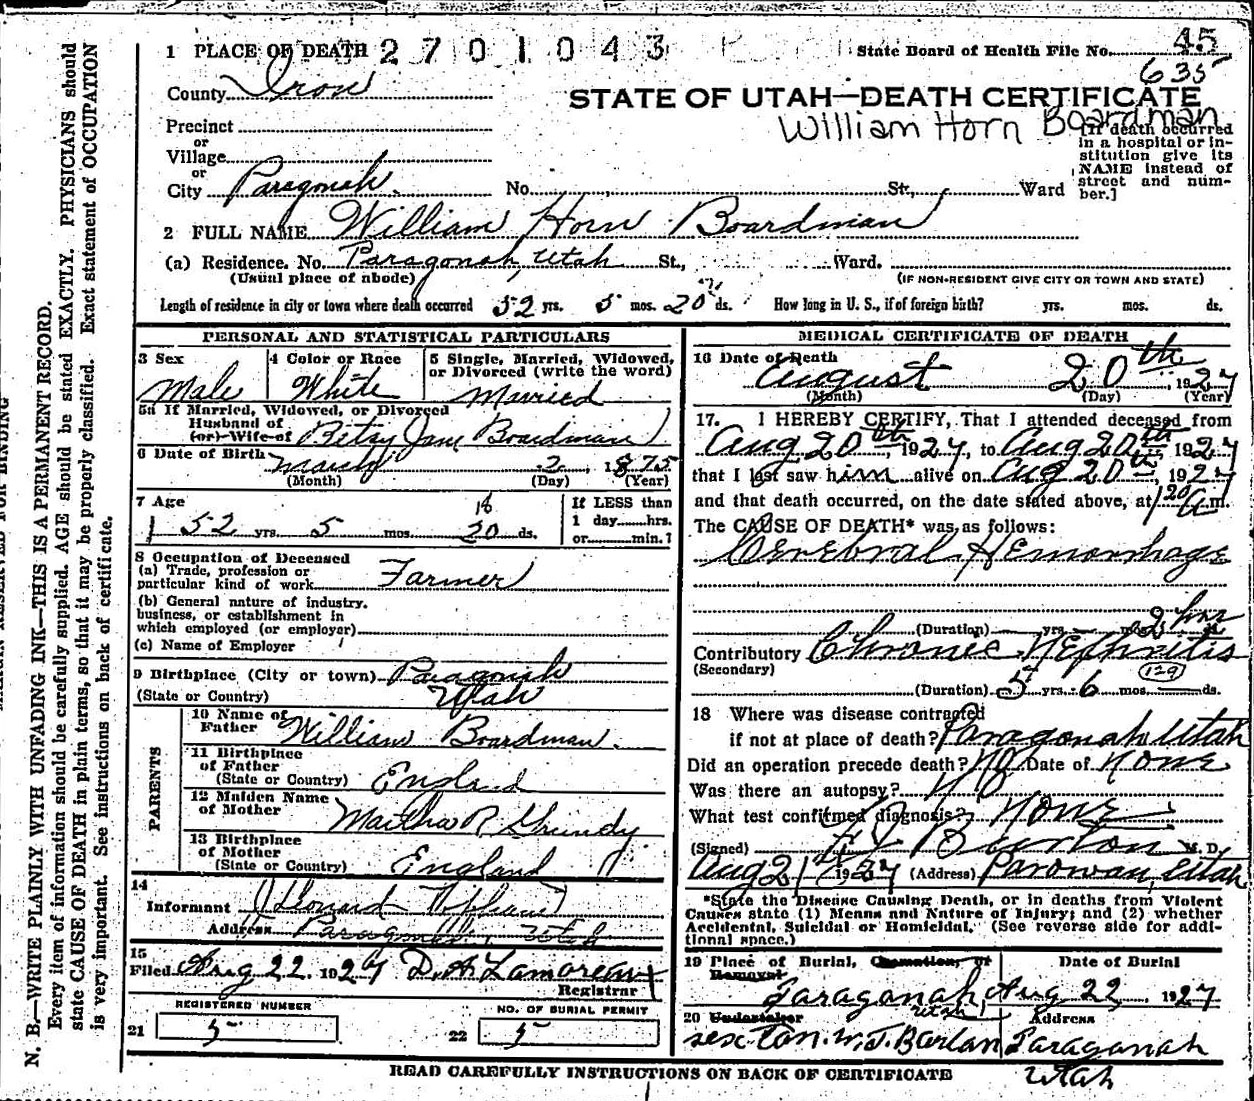 1 PLACE OF DEATH 2701043 State Board of Health File No. 45
635
County Iron
STATE OF UTAH—DEATH CERTIFICATE
William Horn Boardman
Precinct
or
Village
or
City Paragonah. No. St., Ward
[If death occurred in a hospital or institution give its NAME instead of street and number.]
2 FULL NAME William Horn Boardman
(a) Residence. No. Paragonah, Utah St., Ward.
(Usual place of abode) (IF NON-RESIDENT GIVE CITY OR TOWN AND STATE)
Length of residence in city or town where death occurred 52 yrs. 5 mos. 20 ds. How long in U. S., if of foreign birth? yrs. mos. ds.
PERSONAL AND STATISTICAL PARTICULARS
3 Sex 4 Color or Race 5 Single, Married, Widowed,
or Divorced (write the word)
Male White Married
5a If Married, Widowed, or Divorced
Husband of
(or) Wife of Betsy Jane Boardman
6 Date of Birth March 2, 1875
(Month) (Day) (Year)
7 Age If LESS than
18
52 yrs. 5 mos. 20 ds. 1 day hrs.
or min.?
8 Occupation of Deceased
(a) Trade, profession or
particular kind of work Farmer
(b) General nature of industry.
business, or establishment in
which employed (or employer)
(c) Name of Employer
9 Birthplace (City or town) Paragonah
(State or Country) Utah
PARENTS
10 Name of
Father William Boardman.
11 Birthplace
of Father
(State or Country) England
12 Maiden Name
of Mother Martha P. Grundy
13 Birthplace
of Mother
(State or Country) England
14
Informant
Address Paragonah, Utah
15
Filed Aug 22 1927 D. A. Lamoreaux
Registrar
REGISTERED NUMBER NO. OF BURIAL PERMIT
21 5 22 5
MEDICAL CERTIFICATE OF DEATH
16 Date of Death
August 20th, 1927
(Month) (Day) (Year)
17. I HEREBY CERTIFY, That I attended deceased from
Aug 20th, 1927, to Aug 20th, 1927
that I last saw him alive on Aug 20th, 1927
and that death occurred, on the date stated above, at 1 20 A m.
The CAUSE OF DEATH* was as follows:
Cerebral Hemorrhage
(Duration) yrs. mos. 2 hrs
Contributory Chronic Nephritis
(Secondary) 129
(Duration) 5 yrs. 6 mos. ds.
18 Where was disease contracted
if not at place of death? Paragonah Utah
Did an operation precede death? No Date of None
Was there an autopsy? No
What test confirmed diagnosis? None
(Signed) Burton M. D.
Aug 21st 1927 (Address) Parowan, Utah
*State the Disease Causing Death, or in deaths from Violent
Causes state (1) Means and Nature of Injury; and (2) whether
Accidental, Suicidal or Homicidal. (See reverse side for addi-
tional space.)
19 Place of Burial, Cremation, or Date of Burial
Removal
Paragonah Utah Aug 22 1927
20 Undertaker Address
sexton. W. J. Barton Paragonah
Utah
READ CAREFULLY INSTRUCTIONS ON BACK OF CERTIFICATE
MARGIN RESERVED FOR BINDING
N. B.—WRITE PLAINLY WITH UNFADING INK—THIS IS A PERMANENT RECORD.
Every item of information should be carefully supplied. AGE should be stated EXACTLY. PHYSICIANS should
state CAUSE OF DEATH in plain terms, so that it may be properly classified. Exact statement of OCCUPATION
is very important. See instructions on back of certificate.